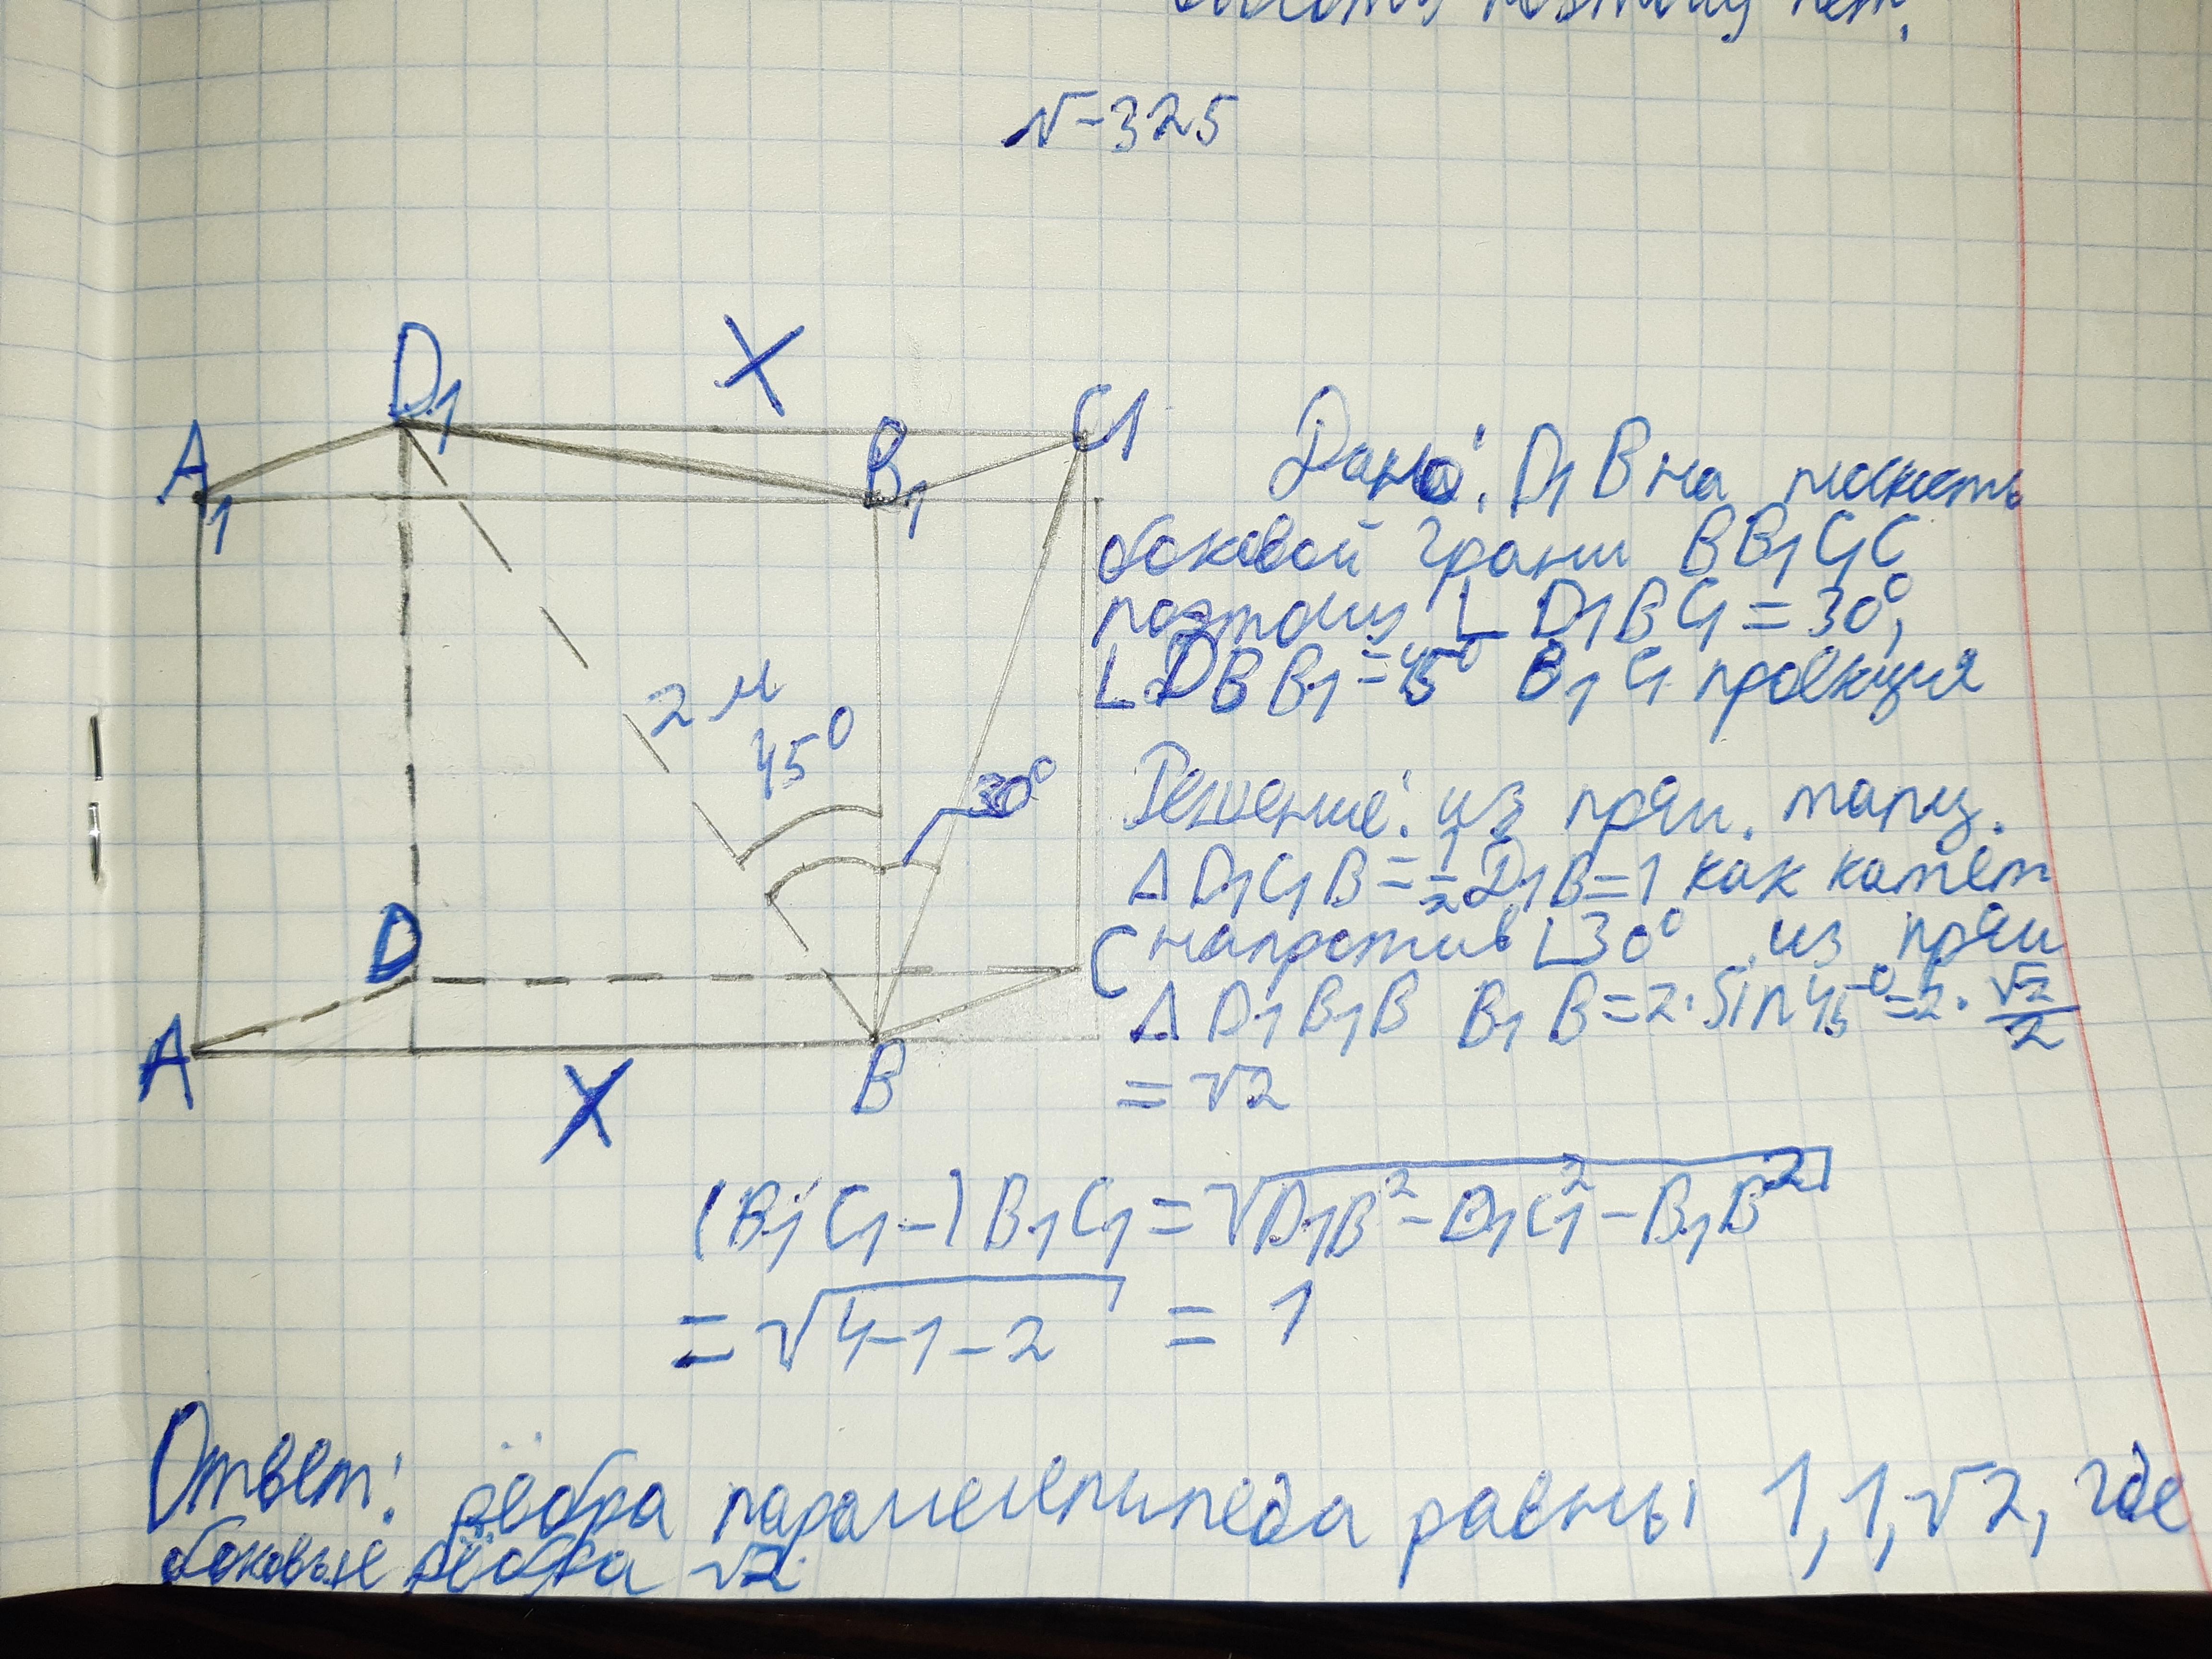 поэтому нет.
N-325
D1
X
C1
A1
B1
2 м
45°
30°
D
C
A
X
B
Дано: D1 B на плоскость
боковой грани BB1C1C
поэтому ∟ D1BC1=30°,
∟DBB1=45° B1C1 проекция
Решение: из прям.
Δ D1C1B=1/2 D1B=1 как катет
напротив ∟30° из прям
Δ D1B1B B1B=2·Sin45°=2·√2/2
=√2
(B1C1-) B1C1=√D1B²-D1C1²-B1B²
=√4-1-2 = 1
Ответ: рёбра параллелепипеда равны 1,1,√2, где
боковые рёбра √2.